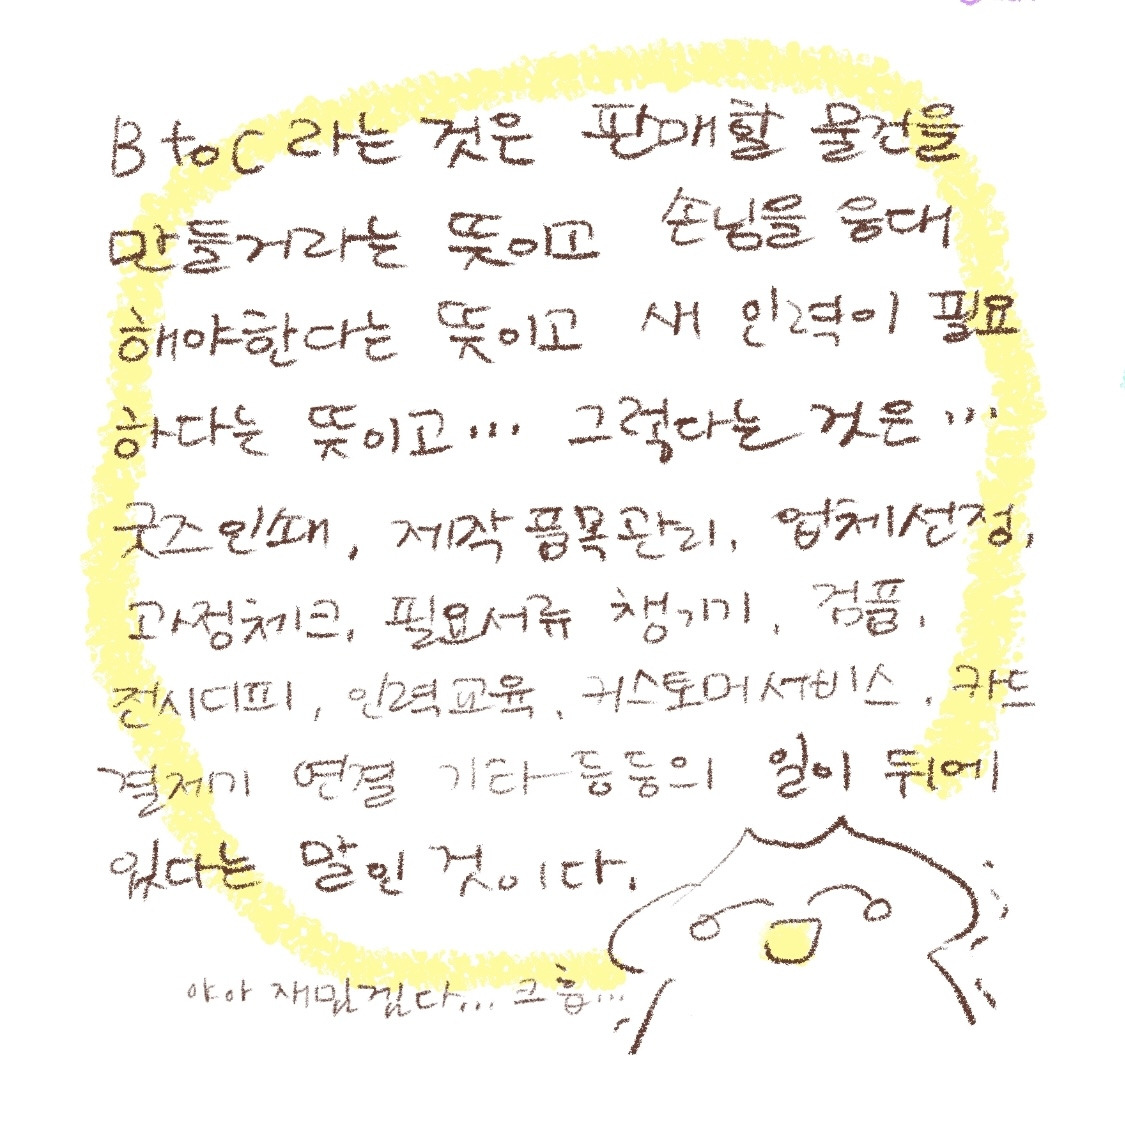 B to C 라는 것은 판매할 물건을
만들거라는 뜻이고 손님을 응대
해야한다는 뜻이고 새 인력이 필요
하다는 뜻이고... 그렇다는 것은...
굿즈인쇄, 제작품목관리, 업체선정,
과정체크, 필요서류 챙기기, 검품,
전시디피, 인력교육, 커스토머서비스, 카드
결제기 연결 기타등등의 일이 뒤에
있다는 말인 것이다.
야아 재밌겠다... 크흡...